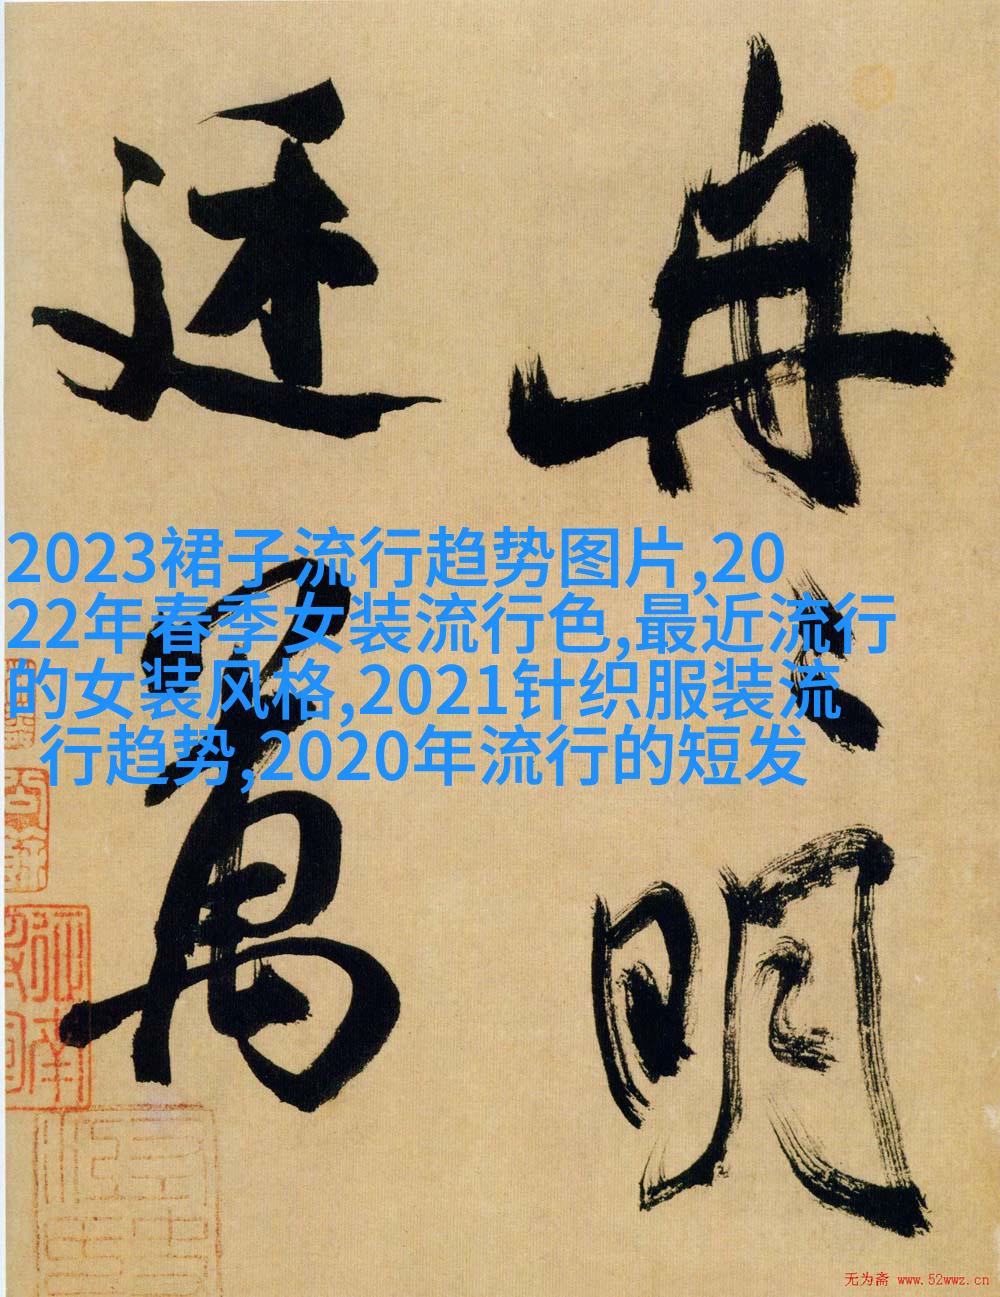 冉〻明
2023裙子流行趋势图片,20
22年春季女装流行色,最近流行
的女装风格,2021针织服装流
行趋势,2020年流行的短发
无为斋 www.52wwz.cn